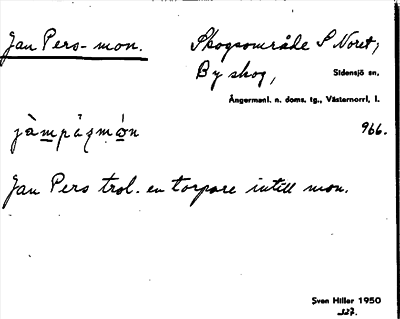 Jan Pers-mon.
Skogsområde S Noret,
By skog, Sidensjö sn.
Ångermanl. n. doms. tg., Västernorrl. l.
966.
Jan Pers trol. en torpare intill mon.
Sven Hiller 1950
327.